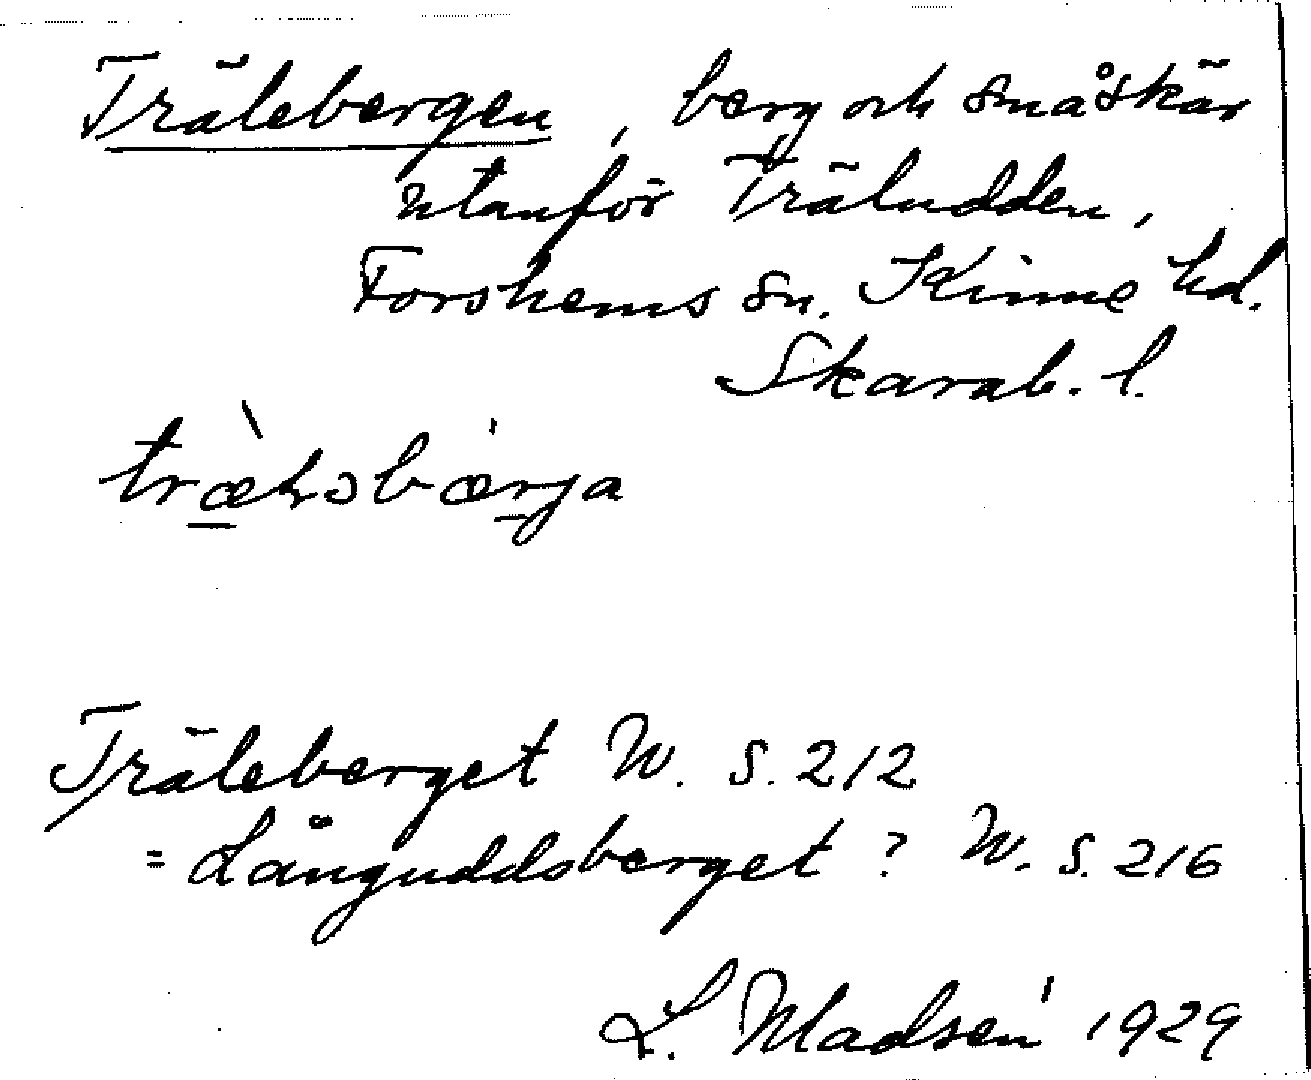 Trälebergen, berg och småskär
utanför Träludden,
Forshems sn. Kinne hd.
Skarab. l.
Träleberget W. S. 212
= Långuddsberget? W. S. 216
L. Madsén 1929